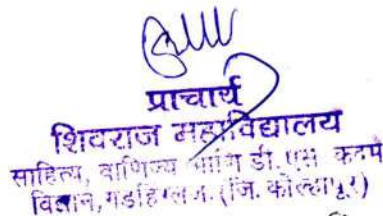 प्राचार्य
शिवराज महाविद्यालय
साहित्य, वाणिज्य आणि डी. एस. कदम
विज्ञान, गडहिंग्लज. (जि. कोल्हापूर)